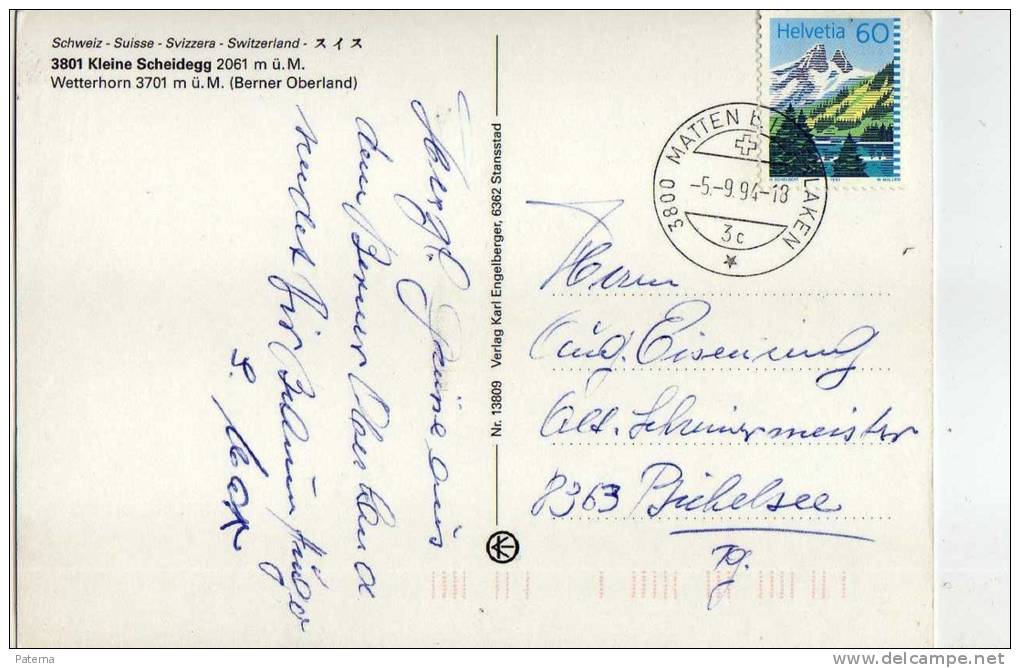 Schweiz - Suisse - Svizzera - Switzerland - スイス
3801 Kleine Scheidegg 2061 m ü.M.
Wetterhorn 3701 m ü.M. (Berner Oberland)
Herzl. Grüsse aus
dem Berner Oberland
sendet Dir
Nr. 13809 Verlag Karl Engelberger, 6362 Stansstad
Helvetia 60
3800 MATTEN B LAKEN
-5.-9.94-18
3c
Herrn
Aug. Eisenring
Alt. Schreinermeister
8363 Bichelsee
Tg.
Paterna
delcampe.net